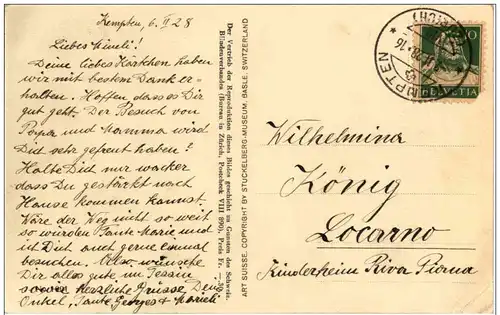 Kempten, 6. II 28
Liebes Mineli!
Deine liebes Kärtchen haben
wir mit bestem Dank er-
halten. Hoffen dass es Dir
gut geht. Der Besuch von
Papa und Mamma wird
Dich sehr gefreut haben?
Halte Dich nur wacker
dass Du gestärkt nach
Hause kommen kannst.
Wäre der Weg nicht so weit
so würden Tante Marie und
ich Dich auch gerne einmal
besuchen. Also wünsche
Dir alles gute im Tessin
sowie herzliche Grüsse, Dein
Onkel, Tante, Georges & Marieli
Der Vertrieb der Reproduktion dieses Bildes geschieht zu Gunsten des Schweiz.
Blindenverbandes (Bureau in Zürich, Postscheck VIII 890). Preis Fr. —.50
ART SUISSE. COPYRIGHT BY STÜCKELBERG-MUSEUM, BASLE, SWITZERLAND
HELVETIA
10
KEMPTEN
(ZÜRICH)
Wilhelmina
König
Locarno
Kinderheim Riva Piana